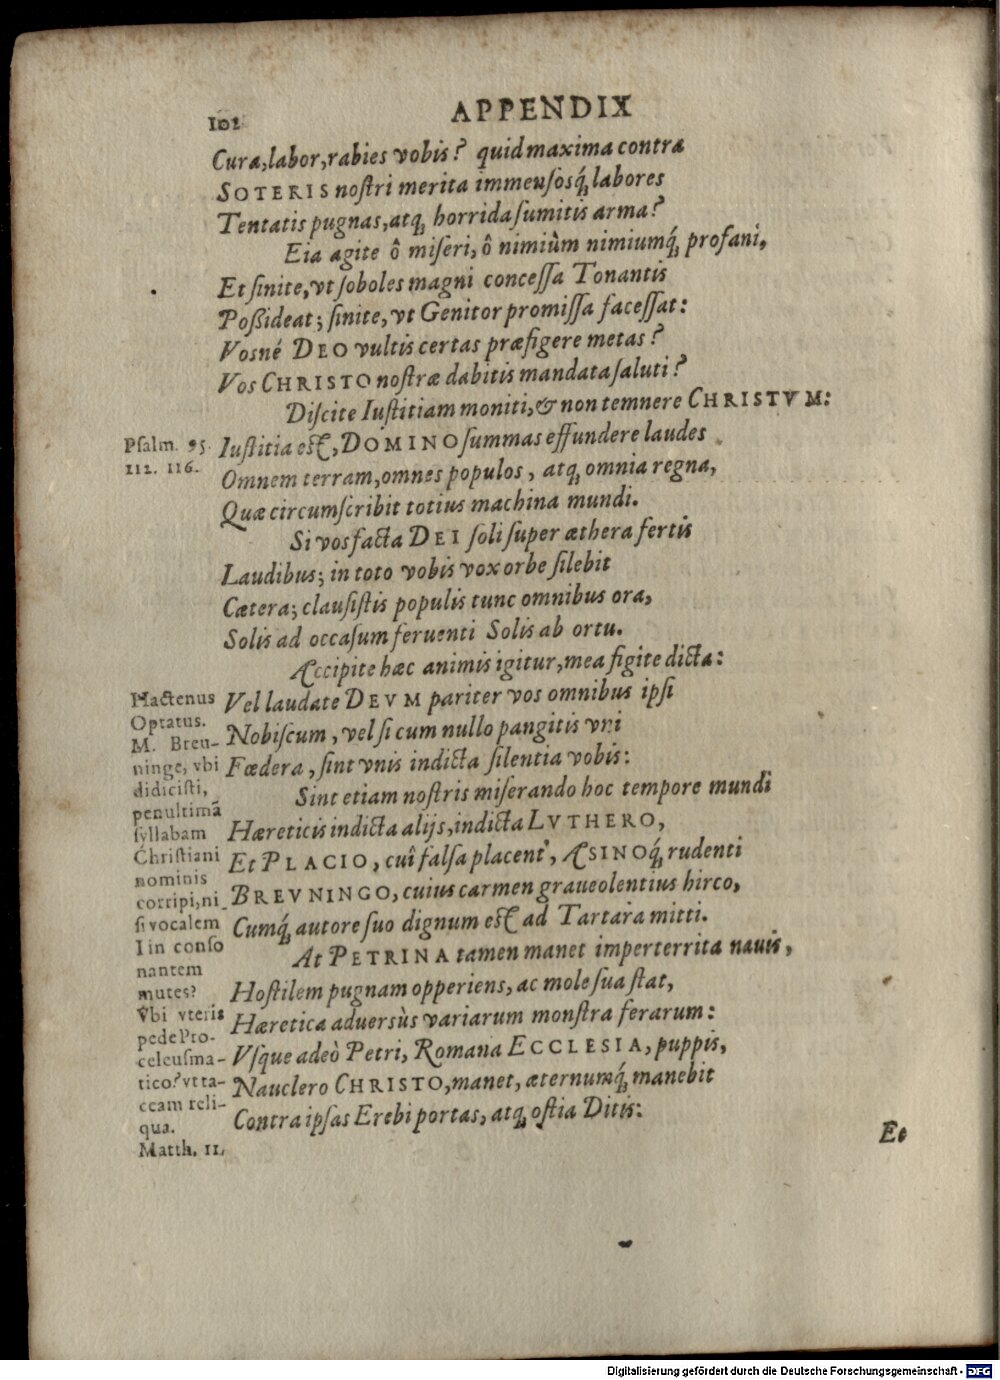 102 APPENDIX
Curæ, labor, rabies vobis? quid maxima contra
SOTERIS noſtri merita immenſosq́; labores
Tentatis pugnas, atq; horrida ſumitis arma?
Eia agite ô miſeri, ô nimiùm nimiumq́; profani,
Et ſinite, vt ſoboles magni conceſſa Tonantis
Poßideat; ſinite, vt Genitor promiſſa faceſſat:
Vosné DEO vultis certas præfigere metas?
Vos CHRISTO noſtræ dabitis mandata ſaluti?
Diſcite Iuſtitiam moniti, & non temnere CHRISTVM:
Iuſtitia eſt, DOMINO ſummas effundere laudes
Omnem terram, omnes populos, atq; omnia regna,
Quæ circumſcribit totius machina mundi.
Si vos facta DEI ſoli ſuper æthera fertis
Laudibus; in toto vobis vox orbe ſilebit
Cætera; clauſiſtis populis tunc omnibus ora,
Solis ad occaſum feruenti Solis ab ortu.
Accipite hæc animis igitur, mea figite dicta:
Vel laudate DEVM pariter vos omnibus ipſi
Nobiſcum, vel ſi cum nullo pangitis vni
Fœdera, ſint vnis indicta ſilentia vobis:
Sint etiam noſtris miſerando hoc tempore mundi
Hæreticis indicta alijs, indicta LVTHERO,
Et PLACIO, cuî falſa placent, ASINOq́; rudenti
BREVNINGO, cuius carmen graueolentius hirco,
Cumq́; autore ſuo dignum eſt ad Tartara mitti.
At PETRINA tamen manet imperterrita nauis,
Hoſtilem pugnam opperiens, ac mole ſua ſtat,
Hæretica aduersùs variarum monſtra ferarum:
Vſque adeò Petri, Romana ECCLESIA, puppis,
Nauclero CHRISTO, manet, æternumq́; manebit
Contra ipſas Erebi portas, atq; oſtia Ditis:
Et
Pſalm. 95.
112. 116.
Hactenus
Optatus.
M. Breu-
ninge, vbi
didiciſti,
penultimã
ſyllabam
Chriſtiani
nominis
corripi, ni-
ſi vocalem
I in conſo
nantem
mutes?
Vbi vteris
pede Pro-
celeuſma-
tico? vt ta-
ceam reli-
qua.
Matth. 11.
Digitalisierung gefördert durch die Deutsche Forschungsgemeinschaft - DFG